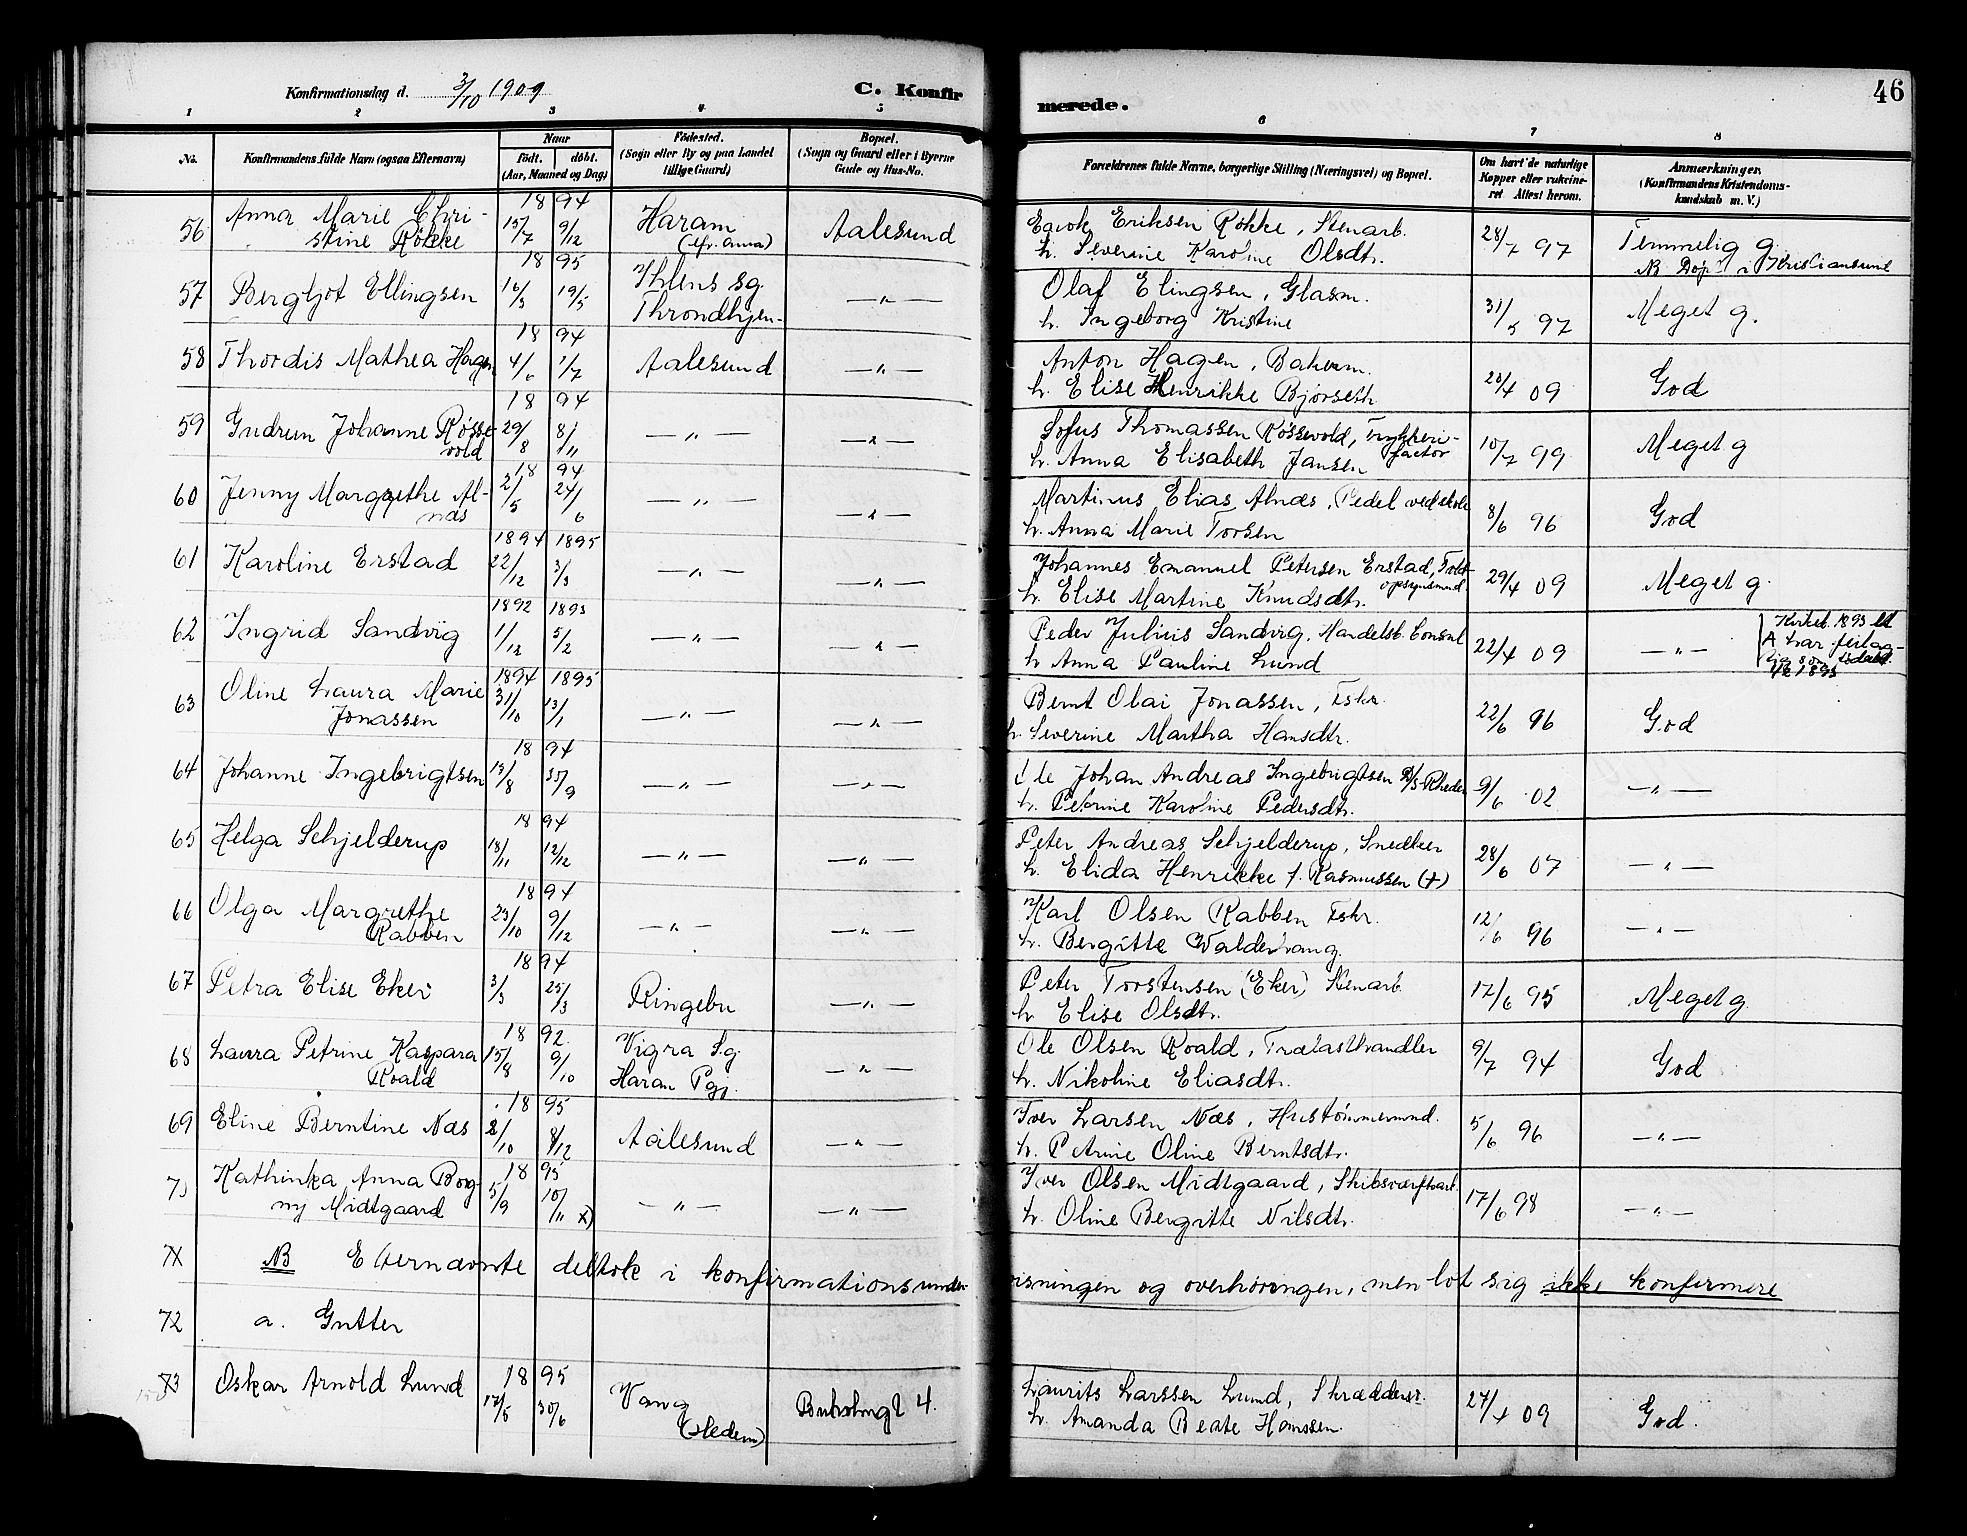 Konfirmationsdag d. 3/10 1909
C. Konfirmerede.
46
1 2 3 4 5 6 7 8
No. Konfirmandens fulde Navn (ogsaa Efternavn) Naar født. døbt. (Aar, Maaned og Dag) Fødested. (Sogn eller By og paa Landet tillige Gaard) Bopæl. (Sogn og Gaard eller i Byerne Gade og Hus-No. Forældrenes fulde Navne, borgerlige Stilling (Næringsvei) og Bopæl. Om havt de naturlige Kopper eller vakcineret Attest herom. Anmærkninger. (Konfirmandens Kristendomskundskab m. V.)
56 Anna Marie Christine Røkke 1894 15/7 9/12 Haram Aalesund Eriksen Røkke, Stenarb. h. Severine Karoline Olsdtr. 28/7 97 Temmelig g. NB Døpt i Kristiansund
57 Bergljot Ellingsen 1895 16/3 19/5 Ihlens sg. Throndhjem —"— Olaf Elingsen, Glasm. h. Ingeborg Kristine 31/5 97 Meget g.
58 Thordis Mathea Hagen 1894 4/6 1/7 Aalesund —"— Anton Hagen, Bakerm. h. Elise Henrikke Bjørseth 23/4 09 God
59 Gudrun Johanne Røssevold 1894 29/8 8/11 —"— —"— Sofus Thomassen Røssevold, Trykkerifactor h. Anna Elisabeth Jansen 10/7 99 Meget g
60 Jenny Margrethe Alnæs 1894 2/5 24/6 —"— —"— Martinus Elias Alnæs, Pedel ved skole h. Anna Marie Torsen 8/6 96 God
61 Karoline Erstad 1894 1895 22/12 3/3 —"— —"— Johannes Emanuel Petersen Erstad, Toldopsynsmand h. Elise Martine Knudsdtr. 29/4 09 Meget g.
62 Ingrid Sandvig 1892 1893 1/12 5/2 —"— —"— Peder Julius Sandvig, Handelsb. Consul h Anna Pauline Lund 22/4 09 —"— Kirkeb. 1893 Lit A har feilagtig som 1/12 1893
63 Oline Laura Marie Jonassen 1894 1895 31/10 13/1 —"— —"— Bernt Olai Jonassen, Fskr. h. Severine Martha Hansdtr. 22/6 96 God
64 Johanne Ingebrigtsen 1894 15/8 30/9 —"— —"— Ole Johan Andreas Ingebrigtsen D/S-Rheder h. Petrine Karoline Pedersdtr. 9/6 02 —"—
65 Helga Schjelderup 1894 18/11 12/12 —"— —"— Peter Andreas Schjelderup, Snedker h. Elida Henrikke f. Rasmussen (+) 28/6 07 —"—
66 Olga Margrethe Rabben 1894 23/10 9/12 —"— —"— Karl Olsen Rabben Fskr. h. Bergitte Walderhaug. 12/6 96 —"—
67 Petra Elise Eker 1894 3/3 25/3 Ringebu —"— Peter Torstensen (Eker) Stenarb h Elise Olsdtr. 17/6 95 Meget g.
68 Laura Petrine Kaspara Roald 1892 15/8 9/10 Vigra Sg. Haram Pgj. —"— Ole Olsen Roald, Trælasthandler h. Nikoline Eliasdtr. 9/7 94 God
69 Eline Berntine Næs 1895 2/10 8/12 Aalesund —"— Iver Larsen Næs, Hustømmermand. h. Petrine Oline Berntsdtr. 5/6 96 —"—
70 Kathinka Anna Borgny Midtgaard 1895 5/9 10/11 x) —"— —"— Iver Olsen Midtgaard, Skibsværftsarb. h. Oline Bergitte Nilsdtr. 17/6 98 —"—
71 NB Efternævnte deltok i konfirmationsundervisningen og overhøringen, men lot sig ikke konfirmere
72 a. Gutter
73 Oskar Arnold Lund 1895 17/5 30/6 Vang (Hedem) Buholmgt 4. Laurits Larssen Lund, Skrædder h. Amanda Beate Hanssen. 27/4 09 God.